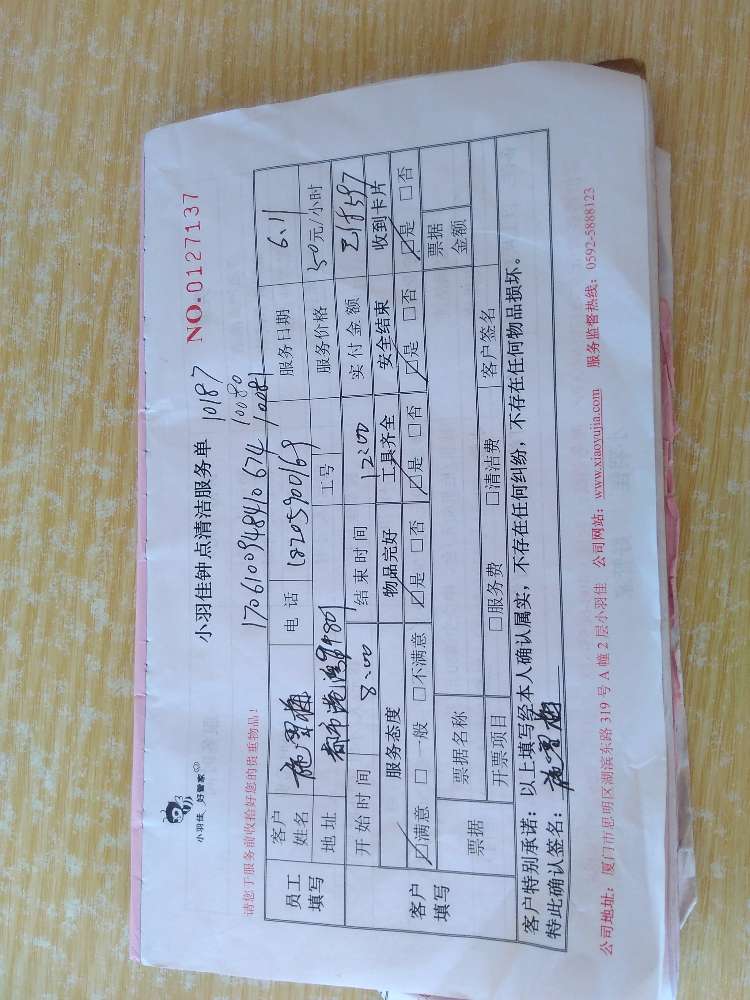 小羽佳 好管家
小羽佳钟点清洁服务单 10187
NO.0127137
请您于服务前收拾好您的贵重物品!
1706100948410674 10080
10081
员工填写 客户姓名 电话 18205900169 服务日期 6.11
地址 工号 服务价格 50元/小时
开始时间 8:00 结束时间 12:00 实付金额
客户填写 服务态度 物品完好 工具齐全 安全结束 收到卡片
☑满意 □一般 □不满意 ☑是 □否 ☑是 □否 ☑是 □否 ☑是 □否
票据 票据名称 票据金额
开票项目 □服务费 □清洁费 客户签名
客户特别承诺:以上填写经本人确认属实,不存在任何纠纷,不存在任何物品损坏。
特此确认签名:
公司地址:厦门市思明区湖滨东路 319 号 A 幢 2 层小羽佳 公司网站:www.xiaoyujia.com 服务监督热线:0592-5888123